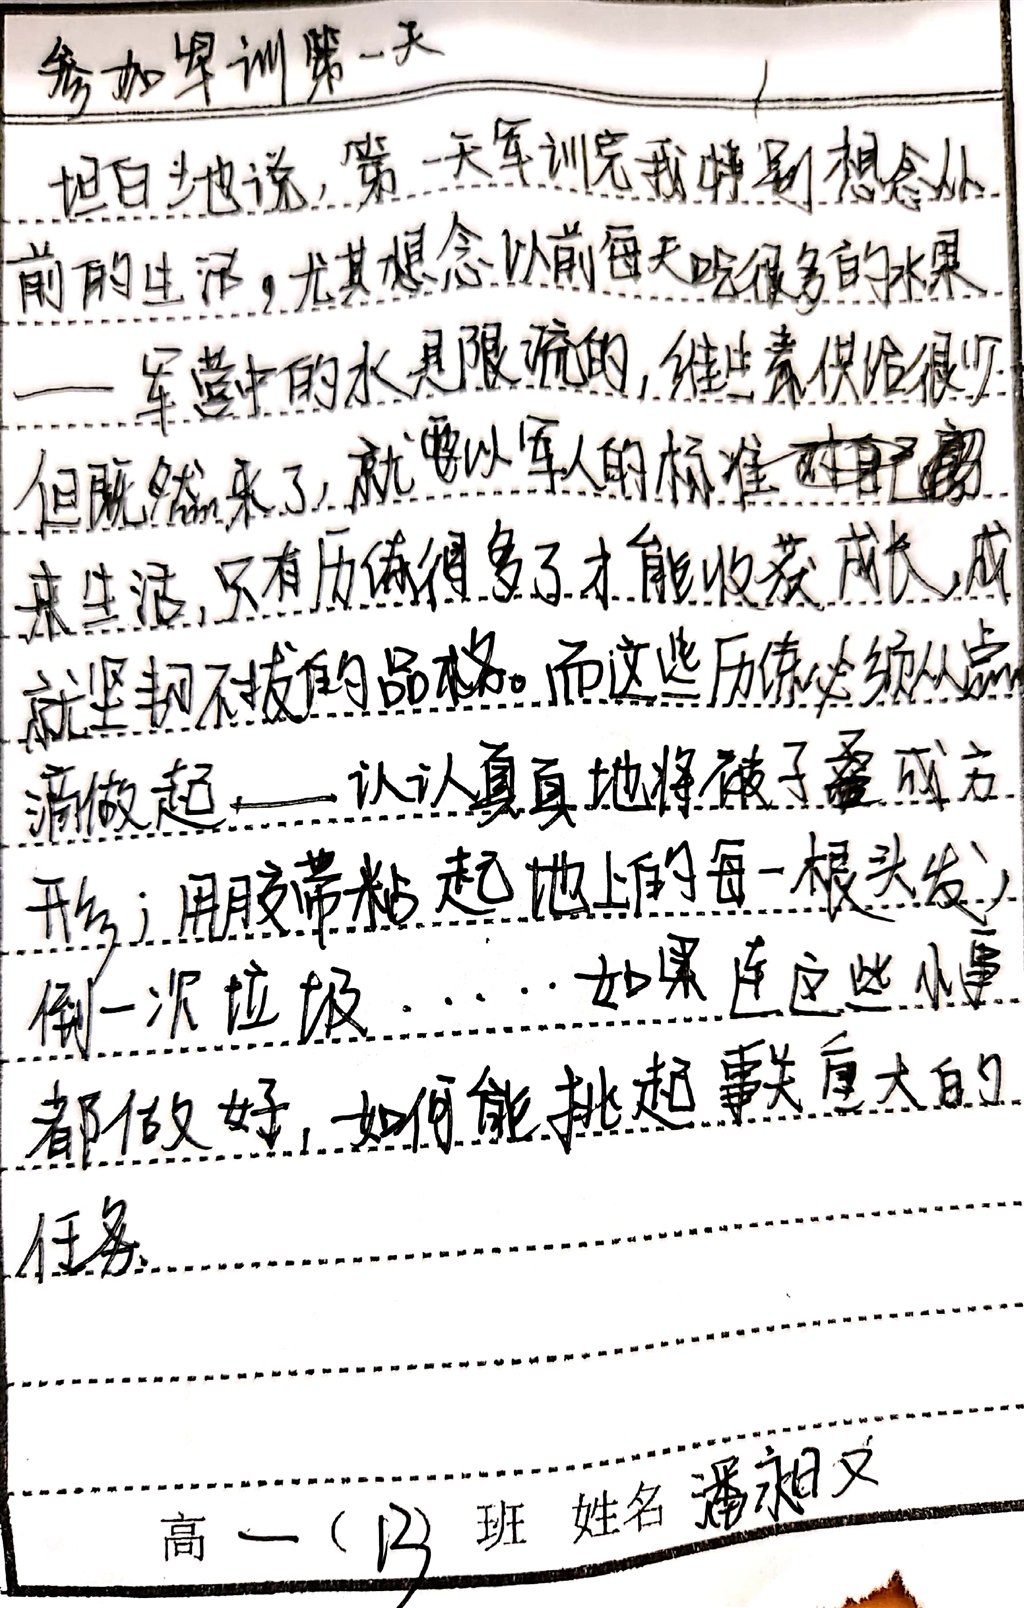 参加军训第一天
坦白地说，第一天军训完我特别想念从
前的生活，尤其想念以前每天吃很多的水果
——军营中的水是限流的，维生素供给很少
但既然来了，就要以军人的标准
来生活，只有历练得多了才能收获成长，成
就坚韧不拔的品格。而这些历练必须从点
滴做起——认认真真地将被子叠成方
形；用胶带粘起地上的每一根头发；
倒一次垃圾······如果连这些小事
都做好，如何能挑起事关重大的
任务.
高一（13）班 姓名 潘昶文